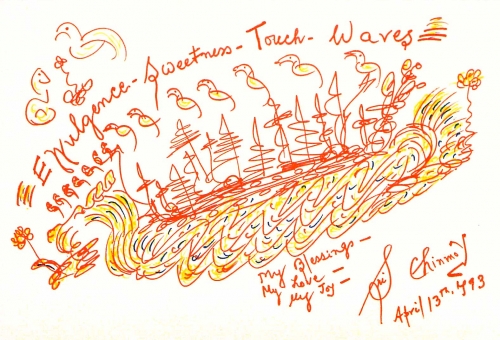 Effulgence-Sweetness-Touch-Waves
My Blessings-
My Love-
My Joy-
Sri Chinmoy
April 13th, 1993